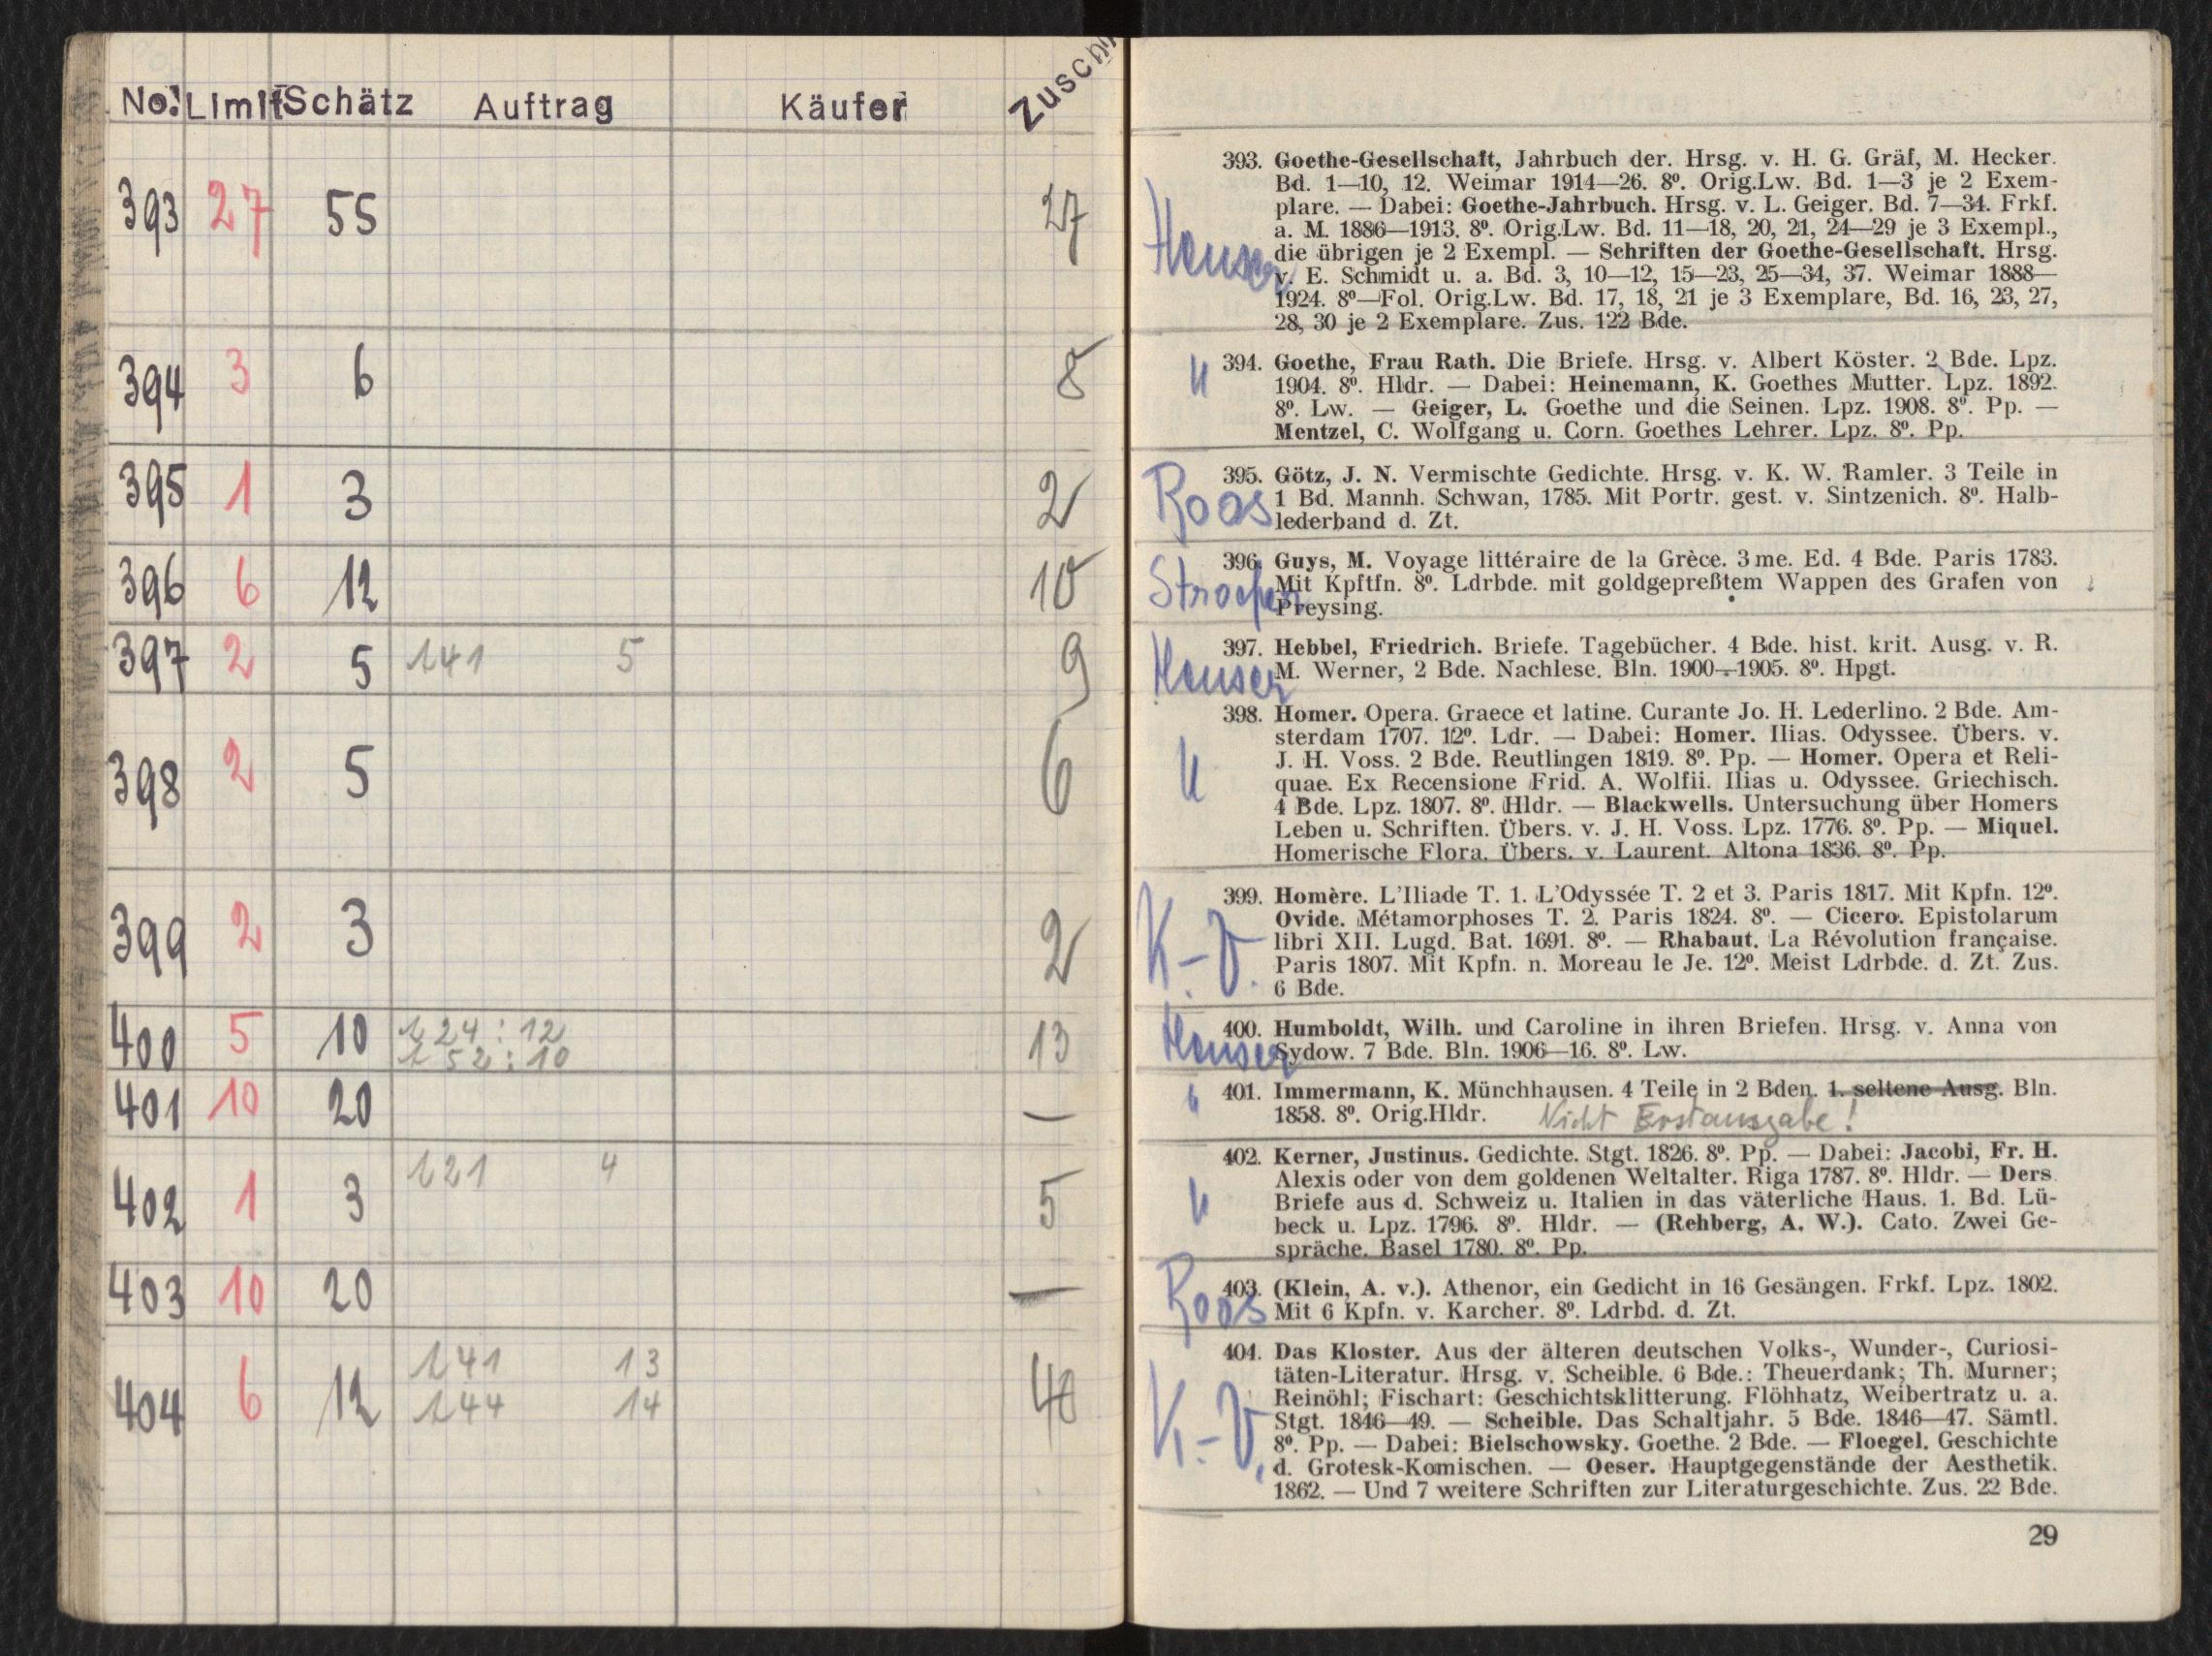 No. Limit Schätz Auftrag Käufer Zuschl
393 27 55 27
394 3 6 8
395 1 3 2
396 6 12 10
397 2 5 141 5 9
398 2 5 6
399 2 3 2
400 5 10 124 : 12 13
152 : 10
401 10 20 —
402 1 3 121 4 5
403 10 20 —
404 6 12 141 13 40
144 14
Hauser
393. Goethe-Gesellschaft, Jahrbuch der. Hrsg. v. H. G. Gräf, M. Hecker.
Bd. 1—10, 12. Weimar 1914—26. 8º. Orig.Lw. Bd. 1—3 je 2 Exem-
plare. — Dabei: Goethe-Jahrbuch. Hrsg. v. L. Geiger. Bd. 7—34. Frkf.
a. M. 1886—1913. 8º. Orig.Lw. Bd. 11—18, 20, 21, 24—29 je 3 Exempl.,
die übrigen je 2 Exempl. — Schriften der Goethe-Gesellschaft. Hrsg.
v. E. Schmidt u. a. Bd. 3, 10—12, 15—23, 25—34, 37. Weimar 1888—
1924. 8º—Fol. Orig.Lw. Bd. 17, 18, 21 je 3 Exemplare, Bd. 16, 23, 27,
28, 30 je 2 Exemplare. Zus. 122 Bde.
"
394. Goethe, Frau Rath. Die Briefe. Hrsg. v. Albert Köster. 2 Bde. Lpz.
1904. 8º. Hldr. — Dabei: Heinemann, K. Goethes Mutter. Lpz. 1892.
8º. Lw. — Geiger, L. Goethe und die Seinen. Lpz. 1908. 8º. Pp. —
Mentzel, C. Wolfgang u. Corn. Goethes Lehrer. Lpz. 8º. Pp.
Roos
395. Götz, J. N. Vermischte Gedichte. Hrsg. v. K. W. Ramler. 3 Teile in
1 Bd. Mannh. Schwan, 1785. Mit Portr. gest. v. Sintzenich. 8º. Halb-
lederband d. Zt.
396. Guys, M. Voyage littéraire de la Grèce. 3me. Ed. 4 Bde. Paris 1783.
Mit Kpftfn. 8º. Ldrbde. mit goldgepreßtem Wappen des Grafen von
Preysing.
Hauser
397. Hebbel, Friedrich. Briefe. Tagebücher. 4 Bde. hist. krit. Ausg. v. R.
M. Werner, 2 Bde. Nachlese. Bln. 1900—1905. 8º. Hpgt.
"
398. Homer. Opera. Graece et latine. Curante Jo. H. Lederlino. 2 Bde. Am-
sterdam 1707. 12º. Ldr. — Dabei: Homer. Ilias. Odyssee. Übers. v.
J. H. Voss. 2 Bde. Reutlingen 1819. 8º. Pp. — Homer. Opera et Reli-
quae. Ex Recensione Frid. A. Wolfii. Ilias u. Odyssee. Griechisch.
4 Bde. Lpz. 1807. 8º. Hldr. — Blackwells. Untersuchung über Homers
Leben u. Schriften. Übers. v. J. H. Voss. Lpz. 1776. 8º. Pp. — Miquel.
Homerische Flora. Übers. v. Laurent. Altona 1836. 8º. Pp.
K.-V.
399. Homère. L'Iliade T. 1. L'Odyssée T. 2 et 3. Paris 1817. Mit Kpfn. 12º.
Ovide. Métamorphoses T. 2. Paris 1824. 8º. — Cicero. Epistolarum
libri XII. Lugd. Bat. 1691. 8º. — Rhabaut. La Révolution française.
Paris 1807. Mit Kpfn. n. Moreau le Je. 12º. Meist Ldrbde. d. Zt. Zus.
6 Bde.
Hauser
400. Humboldt, Wilh. und Caroline in ihren Briefen. Hrsg. v. Anna von
Sydow. 7 Bde. Bln. 1906—16. 8º. Lw.
"
401. Immermann, K. Münchhausen. 4 Teile in 2 Bden. 1. seltene Ausg. Bln.
1858. 8º. Orig.Hldr. Nicht Erstausgabe!
"
402. Kerner, Justinus. Gedichte. Stgt. 1826. 8º. Pp. — Dabei: Jacobi, Fr. H.
Alexis oder von dem goldenen Weltalter. Riga 1787. 8º. Hldr. — Ders
Briefe aus d. Schweiz u. Italien in das väterliche Haus. 1. Bd. Lü-
beck u. Lpz. 1796. 8º. Hldr. — (Rehberg, A. W.). Cato. Zwei Ge-
spräche. Basel 1780. 8º. Pp.
Roos
403. (Klein, A. v.). Athenor, ein Gedicht in 16 Gesängen. Frkf. Lpz. 1802.
Mit 6 Kpfn. v. Karcher. 8º. Ldrbd. d. Zt.
K.-V.
404. Das Kloster. Aus der älteren deutschen Volks-, Wunder-, Curiosi-
täten-Literatur. Hrsg. v. Scheible. 6 Bde.: Theuerdank; Th. Murner;
Reinöhl; Fischart: Geschichtsklitterung. Flöhhatz, Weibertratz u. a.
Stgt. 1846—49. — Scheible. Das Schaltjahr. 5 Bde. 1846—47. Sämtl.
8º. Pp. — Dabei: Bielschowsky. Goethe. 2 Bde. — Floegel. Geschichte
d. Grotesk-Komischen. — Oeser. Hauptgegenstände der Aesthetik.
1862. — Und 7 weitere Schriften zur Literaturgeschichte. Zus. 22 Bde.
29